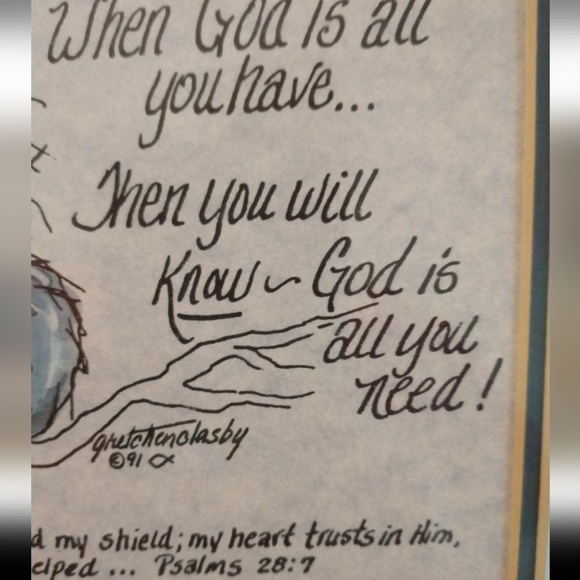 When God is all
you have...
Then you will
Know ~ God is
all you
need!
gretchenclasby
©91
d my shield; my heart trusts in Him,
elped ... Psalms 28:7